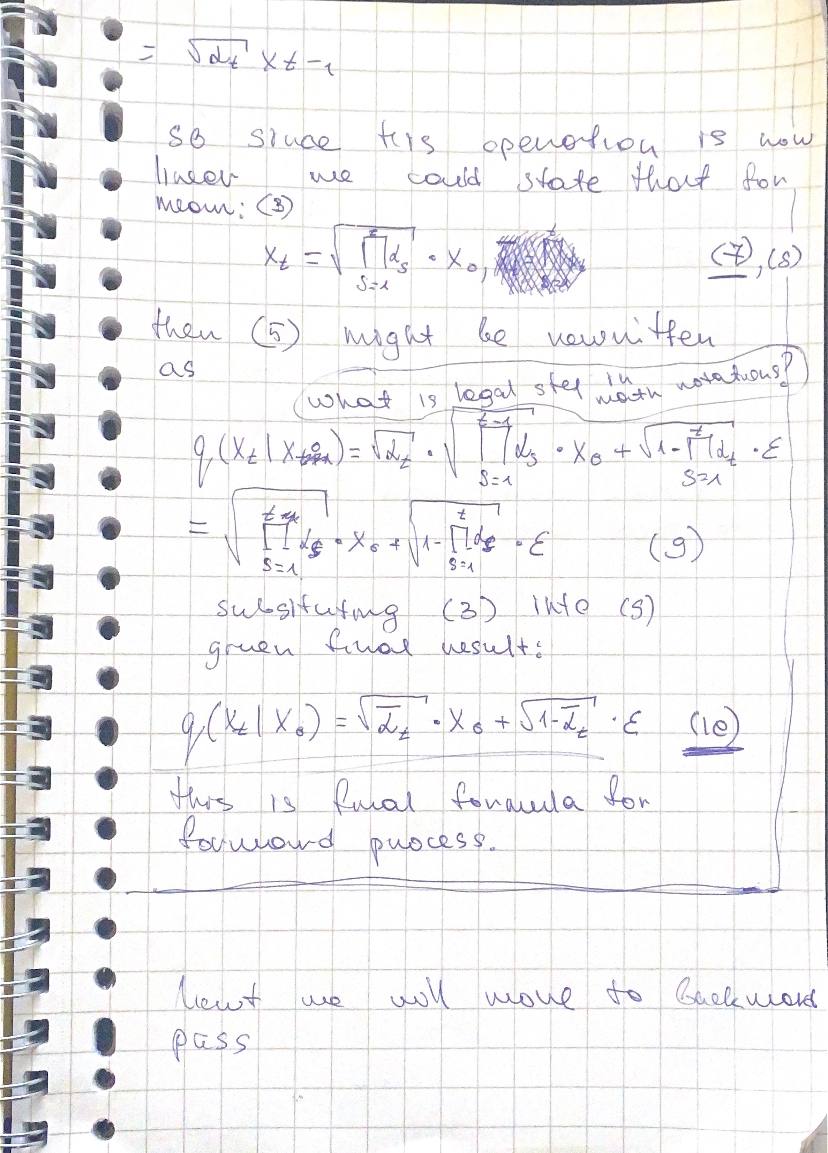 = √α_t x_{t-1}
so since this operation is now
linear we could state that for
mean: (3)
x_t = √(∏_{s=1}^{t} α_s) · x_0, (7), (8)
then (5) might be rewritten
as
what is legal step in math notations?
q(x_t | x_0) = √α_t · √(∏_{s=1}^{t-1} α_s) · x_0 + √(1-∏_{s=1}^{t} α_t) · ε
= √(∏_{s=1}^{t} α_s) · x_0 + √(1-∏_{s=1}^{t} α_s) · ε (9)
subsituting (3) into (9)
given final result:
q(x_t | x_0) = √ᾱ_t · x_0 + √(1-ᾱ_t) · ε (10)
this is final formula for
forward process.
Next we will move to backward
pass